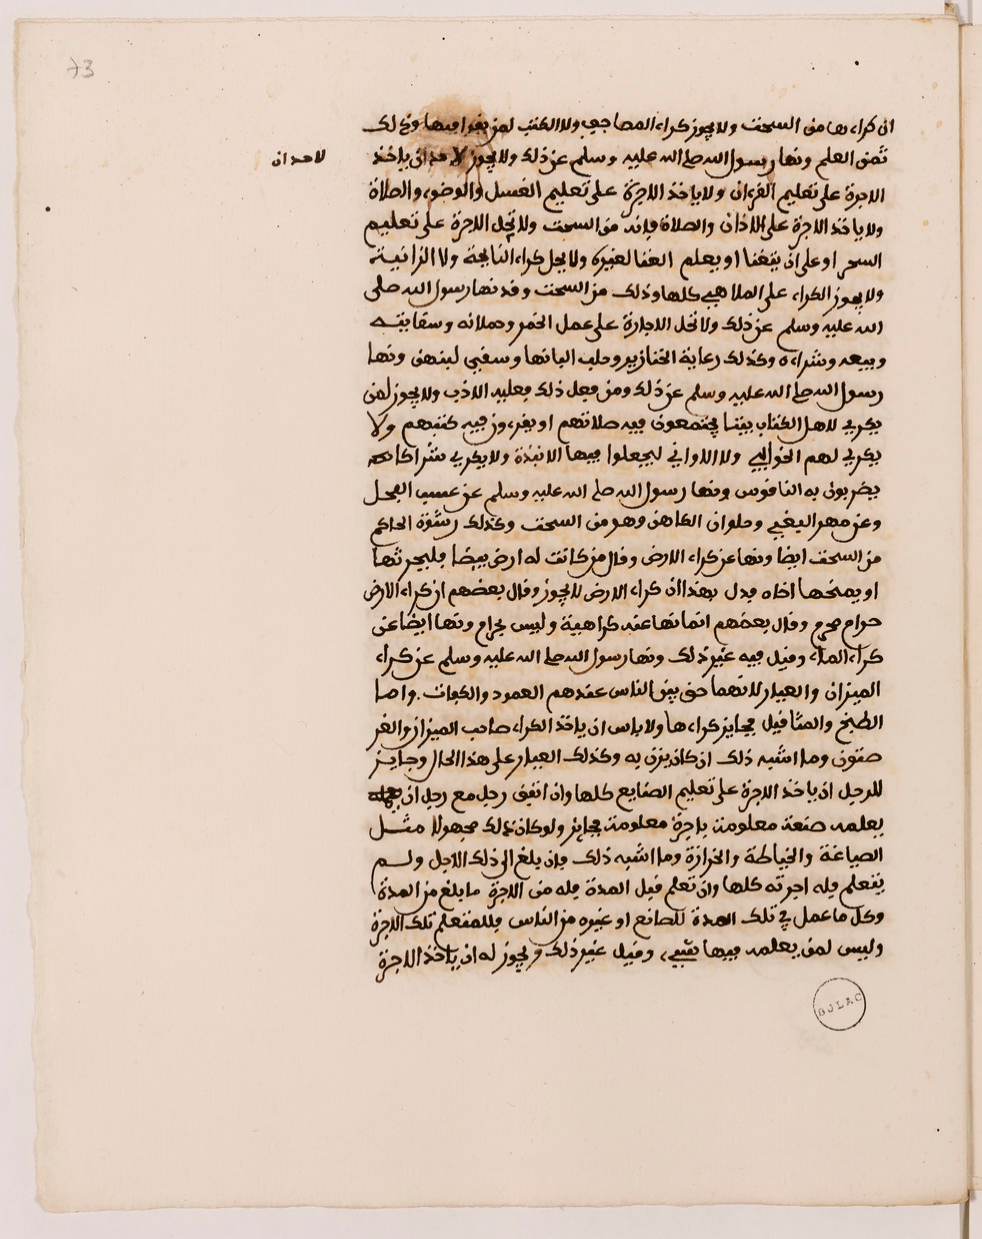 73
ان كراءها من السحت ولا يجوز كراء المصاحف ولا الكتب لمن يقرا فيها وكذلك
ثمن العلم ونها رسول الله صلى الله عليه وسلم عن ذلك ولا يجوز لاحد ان ياخذ
لاحد ان
الاجرة على تعليم القرءان ولا ياخذ الاجرة على تعليم الغسل والوضوء والصلاة
ولا ياخذ الاجرة على الاذان والصلاة فإنه من السحت ولا تحل الاجرة على تعليم
السحر او على ان يتغنا او يعلم الغنا لغيره ولا يحل كراء النايحة ولا الزانية
ولا يجوز الكراء على الملاهي كلها وذلك من السحت وقد نها رسول الله صلى
الله عليه وسلم عن ذلك ولا تحل الاجارة على عمل الخمر وحملانه وسقايته
وبيعه وشراءه وكذلك رعاية الخنازير وحلب البانها وسقي لبنهن ونها
رسول الله صلى الله عليه وسلم عن ذلك ومن فعل ذلك فعليه الادب ولا يجوز لمن
يكري لاهل الكتاب بيتا يجتمعون فيه صلاتهم او يقرءون فيه كتبهم ولا
يكري لهم الخوابي ولا الاواني ليجعلوا فيها الانبذة ولا يكري
يضربون به الناقوس ونها رسول الله صلى الله عليه وسلم عن عسب الفحل
وعن مهر البغي وحلوان الكاهن وهو من السحت وكذلك رشوة الحاكم
من السحت ايضا ونها عن كراء الارض وقال من كانت له ارض بيضا فليحرثها
او يمنحها اخاه فدل بهذا ان كراء الارض لا يجوز وقال بعضهم ان كراء الارض
حرام محرم وقال بعضهم انما نها عنه كراهية وليس بحرام ونها ايضا عن
كراء الماء وقيل فيه غير ذلك ونها رسول الله صلى الله عليه وسلم عن كراء
الميزان والعيار لانهما حق بين الناس عندهم العمود والكفات . واما
الطبخ والمثاقيل فجايز كراءها ولا باس ان ياخذ الكراء صاحب الميزان والقر
صتون وما اشبه ذلك ان كان يزن به وكذلك العيار على هذا الحال وجايز
للرجل ان ياخذ الاجرة على تعليم الصنايع كلها وان اتفق رجل مع رجل ان
يعلمه صنعة معلومة باجرة معلومة فجايز ولو كان ذلك مجهولا مثل
الصياغة والخياطة والخرازة وما اشبه ذلك فإن بلغ الى ذلك الاجل ولم
يتعلم فله اجرته كلها وان تعلم قبل المدة فله من الاجرة ما بلغ من المدة
وكل ما عمل في تلك المدة للصانع او غيره من الناس فللمتعلم تلك الاجرة
وليس لمن يعلمه فيها شيء وقيل غير ذلك ويجوز له ان ياخذ الاجرة
BULAC